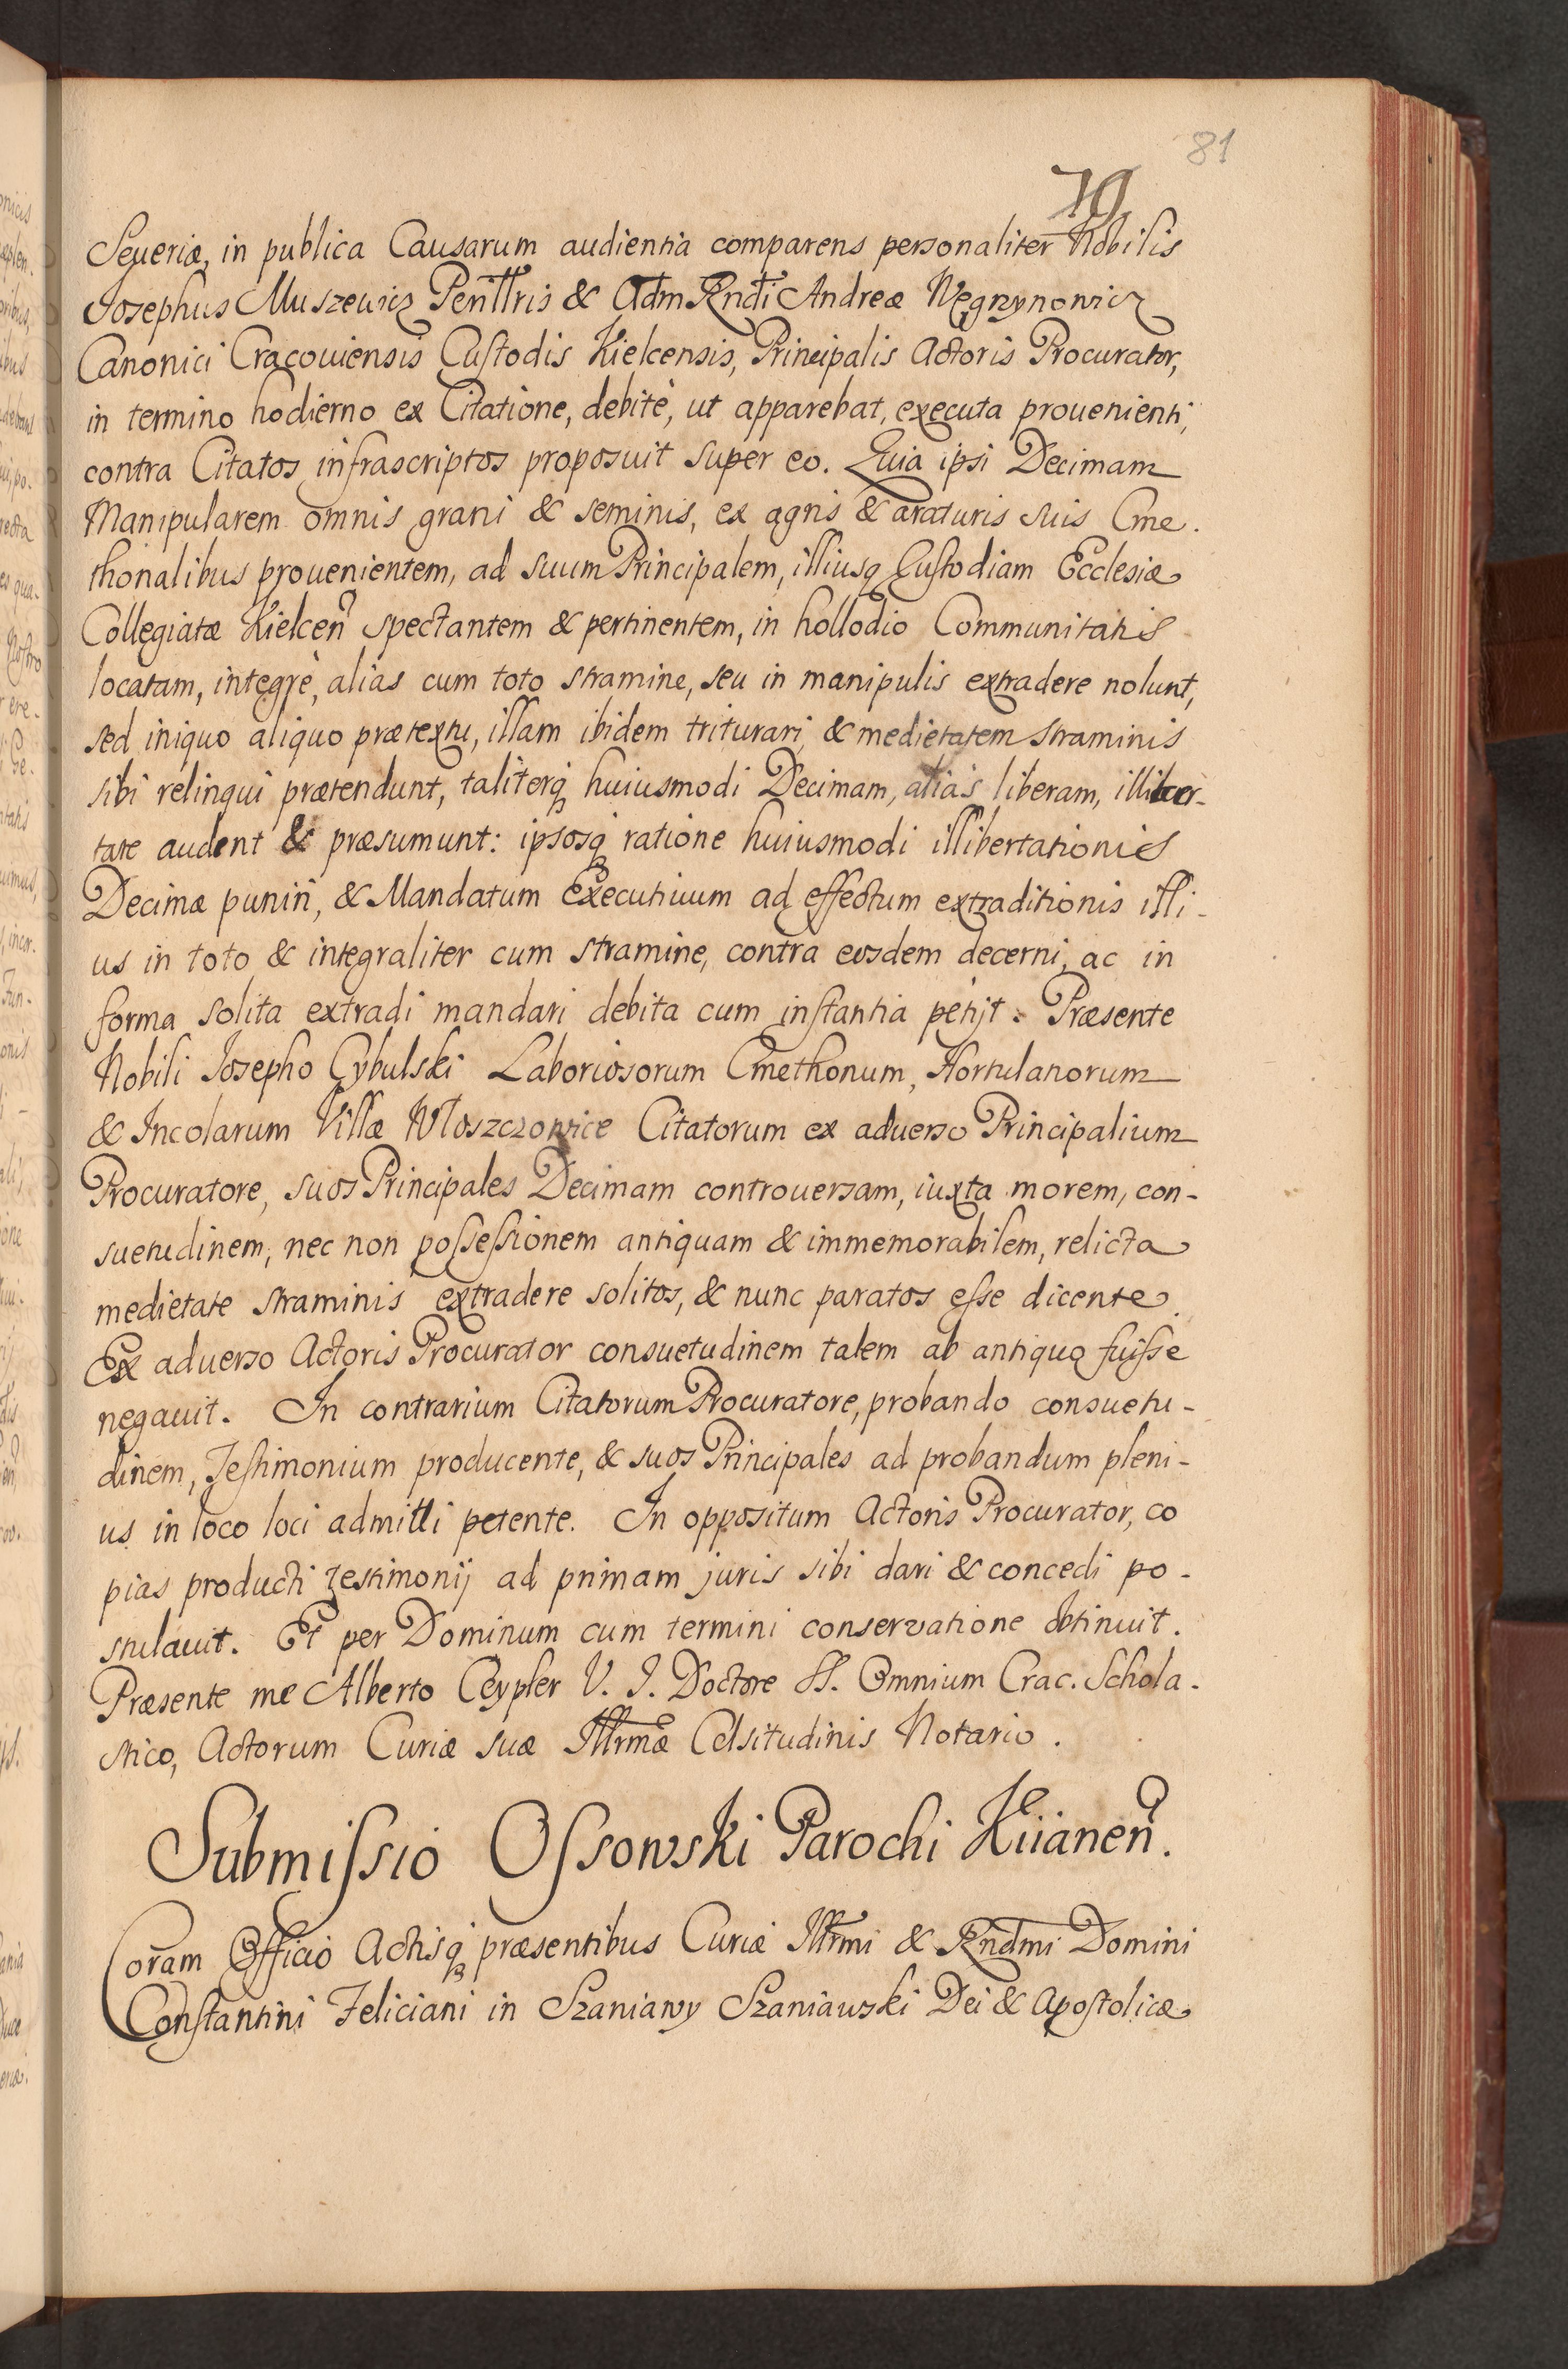 81
79
Seueriæ, in publica Causarum audientia comparens personaliter Nobilis
Josephus Muszewicz Penttris & Adm Rndi Andreæ Węgrzynowicz
Canonici Cracouiensis Custodis Kielcensis, Principalis Actoris Procurator,
in termino hodierno ex Citatione, debitè, ut apparebat, executa prouenienti,
contra Citatos infrascriptos proposuit super eo. Quia ipsi Decimam
Manipularem omnis grani & seminis, ex agris & araturis suis Cme.
thonalibus prouenientem, ad suum Principalem, illiusq Custodiam Ecclesiæ
Collegiatæ Kielcen spectantem & pertinentem, in hollodio Communitatis
locatam, integrè, alias cum toto stramine, seu in manipulis extradere nolunt,
sed iniquo aliquo prætextu, illam ibidem triturari, & medietatem straminis
sibi relinqui prætendunt, taliterq huiusmodi Decimam, alias liberam, illiber-
tare audent & præsumunt: ipsosq ratione huiusmodi illibertationis
Decimæ puniri, & Mandatum Executiuum ad effectum extraditionis illi-
us in toto & integraliter cum stramine, contra eosdem decerni, ac in
forma solita extradi mandari debita cum instantia petijt. Præsente
Nobili Josepho Cybulski Laboriosorum Cmethonum, Hortulanorum
& Incolarum Villæ Włoszczowice Citatorum ex aduerso Principalium
Procuratore, suos Principales Decimam controuersam, iuxta morem, con-
suetudinem, nec non possessionem antiquam & immemorabilem, relicta
medietate straminis extradere solitos, & nunc paratos esse dicente.
Ex aduerso Actoris Procurator consuetudinem talem ab antiquo fuisse
negauit. In contrarium Citatorum Procuratore, probando consuetu-
dinem, Testimonium producente, & suos Principales ad probandum pleni-
us in loco loci admitti petente. In oppositum Actoris Procurator, co
pias producti testimonij ad primam juris sibi dari & concedi po-
stulauit. Et per Dominum cum termini conservatione obtinuit.
Præsente me Alberto Ceypler V. J. Doctore SS. Omnium Crac. Schola-
stico, Actorum Curiæ suæ Illrmæ Celsitudinis Notario.
Submissio Ossowski Parochi Kiianen.
Coram Officio Actisq præsentibus Curiæ Illrmi & Rndmi Domini
Constantini Feliciani in Szaniawy Szaniawski Dei & Apostolicæ